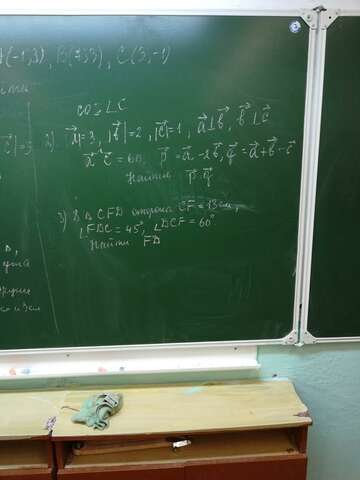 (-1,3), B(7,3), C(3,-1)
cos∠C
|c⃗|=3 2) |a⃗|=3, |b⃗|=2, |c⃗|=1, a⃗⊥b⃗, b⃗⊥c⃗
a⃗^c⃗=60, p⃗=a⃗-2b⃗, q⃗=a⃗+b⃗-c⃗
Найти p⃗·q⃗
3) В ΔCFD сторона CF=13см,
∠FDC=45°, ∠DCF=60°
Найти FD